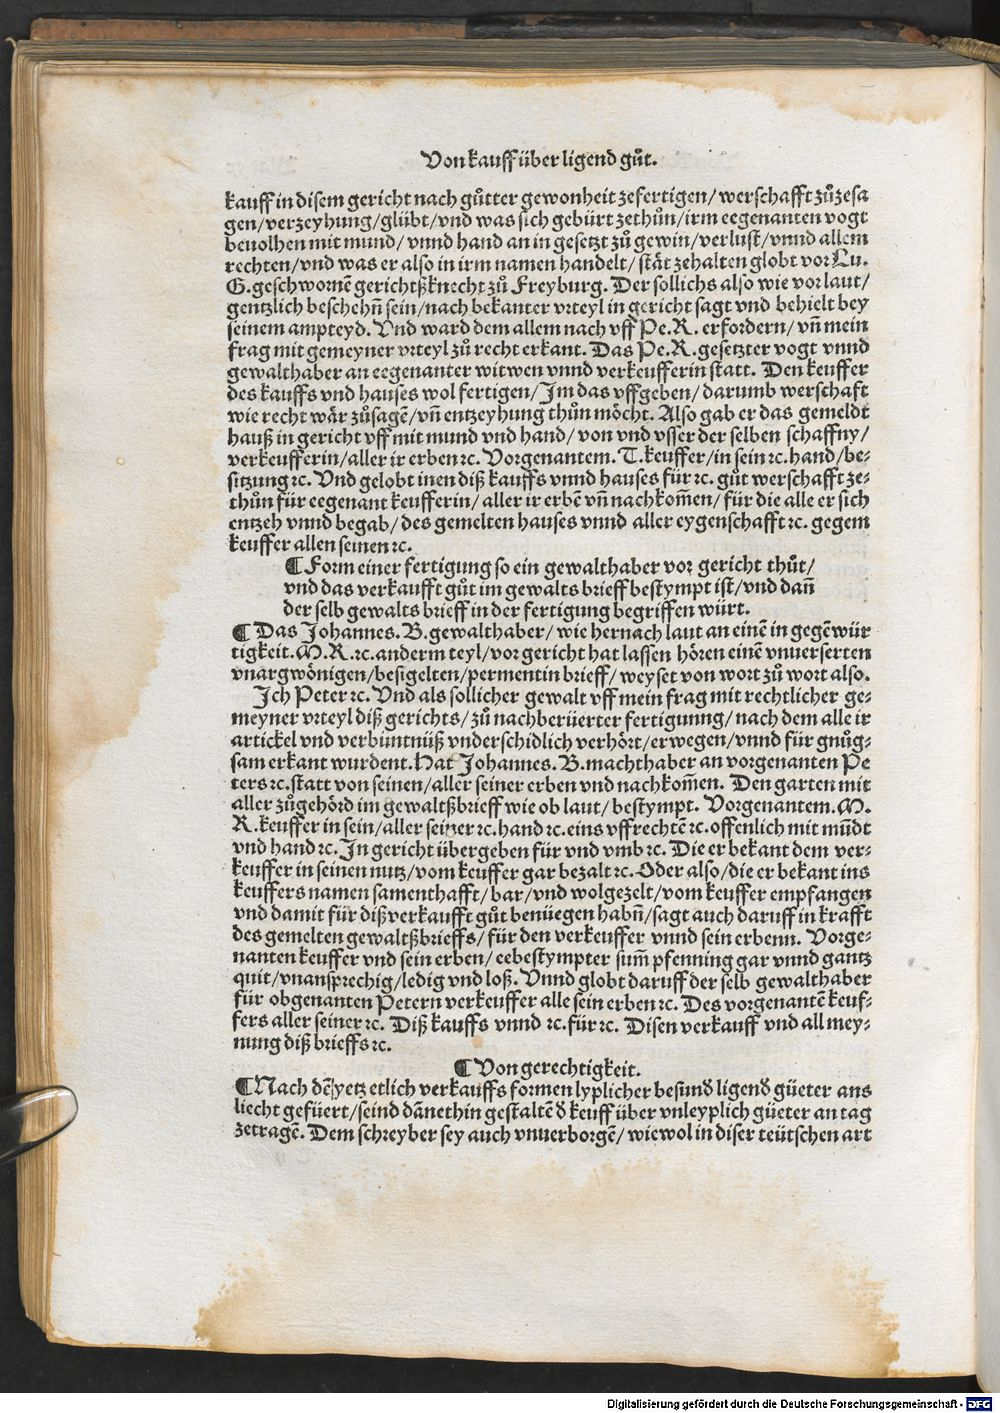 Von kauff über ligend gůt.
kauff in disem gericht nach gůtter gewonheit zefertigen/ werschafft zůzesa
gen/verzeyhung/glübt/vnd was sich gebürt zethůn/irm eegenanten vogt
beuolhen mit mund/ vnnd hand an in gesetzt zů gewin/verlust/vnnd allem
rechten/vnd was er also in irm namen handelt/ stät zehalten globt vor Lu.
G.geschwornē gerichtßknecht zů Freyburg. Der sollichs also wie vor laut/
gentzlich beschehn̄ sein/nach bekanter vrteyl in gericht sagt vnd behielt bey
seinem ampteyd. Vnd ward dem allem nach vff Pe.R. erfordern/ vn̄ mein
frag mit gemeyner vrteyl zů recht erkant. Das Pe.R.gesetzter vogt vnnd
gewalthaber an eegenanter witwen vnnd verkeufferin statt. Den keuffer
des kauffs vnd hauses wol fertigen/Im das vffgeben/darumb werschaft
wie recht wär zůsagē/vn̄ entzeyhung thůn möcht. Also gab er das gemeldt
hauß in gericht vff mit mund vnd hand/ von vnd vsser der selben schaffny/
verkeufferin/aller ir erben ꝛc. Vorgenantem. T.keuffer/in sein ꝛc.hand/be⸗
sitzung ꝛc. Vnd gelobt inen diß kauffs vnnd hauses für ꝛc. gůt werschafft ze⸗
thůn für eegenant keufferin/ aller ir erbē vn̄ nachkom̄en/ für die alle er sich
entzeh vnnd begab/des gemelten hauses vnnd aller eygenschafft ꝛc. gegem
keuffer allen seinen ꝛc.
¶ Form einer fertigung so ein gewalthaber vor gericht thůt/
vnd das verkaufft gůt im gewalts brieff bestympt ist/vnd dan̄
der selb gewalts brieff in der fertigung begriffen würt.
¶ Das Johannes. B.gewalthaber/ wie hernach laut an einē in gegēwür
tigkeit.M.R.ꝛc.anderm teyl/vor gericht hat lassen hören einē vnuerserten
vnargwönigen/besigelten/permentin brieff/ weyset von wort zů wort also.
Ich Peter ꝛc. Vnd als sollicher gewalt vff mein frag mit rechtlicher ge⸗
meyner vrteyl diß gerichts/ zů nachberüerter fertigunng/ nach dem alle ir
artickel vnd verbüntnüß vnderschidlich verhört/erwegen/vnnd für gnůg⸗
sam erkant wurdent. Hat Johannes. B.machthaber an vorgenanten Pe
ters ꝛc.statt von seinen/aller seiner erben vnd nachkom̄en. Den garten mit
aller zůgehörd im gewaltßbrieff wie ob laut/ bestympt. Vorgenantem.M.
R.keuffer in sein/aller seiner ꝛc.hand ꝛc.eins vffrechtē ꝛc.offenlich mit mūdt
vnd hand ꝛc. In gericht übergeben für vnd vmb ꝛc. Die er bekant dem ver⸗
keuffer in seinen nutz/vom keuffer gar bezalt ꝛc. Oder also/die er bekant ins
keuffers namen samenthafft/ bar/vnd wolgezelt/vom keuffer empfangen
vnd damit für diß verkaufft gůt benüegen habn̄/sagt auch daruff in krafft
des gemelten gewaltßbrieffs/ für den verkeuffer vnnd sein erbenn. Vorge⸗
nanten keuffer vnd sein erben/ eebestympter sum̄ pfenning gar vnnd gantz
quit/vnansprechig/ledig vnd loß. Vnnd globt daruff der selb gewalthaber
für obgenanten Petern verkeuffer alle sein erben ꝛc. Des vorgenantē keuf⸗
fers aller seiner ꝛc. Diß kauffs vnnd ꝛc.für ꝛc. Disen verkauff vnd all mey⸗
nung diß brieffs ꝛc.
¶ Von gerechtigkeit.
¶ Nach dē yetz etlich verkauffs formen lyplicher besunď ligenď güeter ans
liecht gefüert/ seind dānethin gestaltē ď keuff über vnleyplich güeter an tag
zetragē. Dem schreyber sey auch vnuerborgē/ wiewol in diser teütschen art
Digitalisierung gefördert durch die Deutsche Forschungsgemeinschaft - DFG